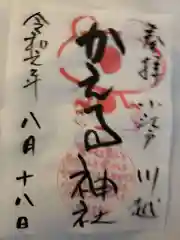 奉拝 小江戸川越
かえる神社
令和元年
八月十八日